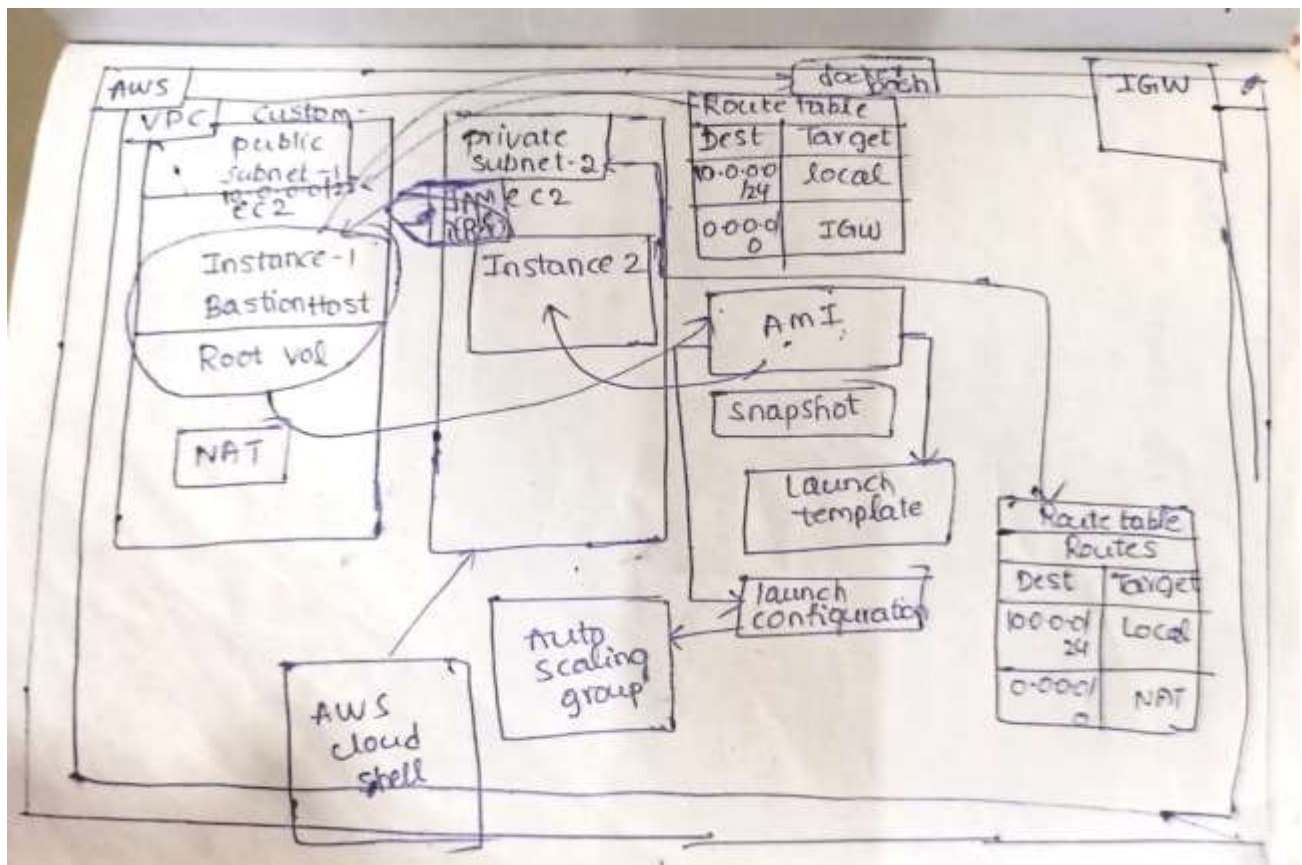 AWS
VPC
custom-
public
subnet-1
ec2
Instance-1
Bastion Host
Root vol
NAT
private
subnet-2
ec2
Instance 2
Route table
Dest Target
10.0.0.0 local
/24
0.0.0.0/ IGW
0
IGW
AMI
snapshot
Launch
template
launch
configuration
Auto
scaling
group
AWS
cloud
shell
Route table
Routes
Dest Target
10.0.0.0/ Local
24
0.0.0.0/ NAT
0